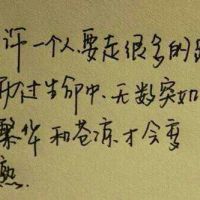 许一个人要走很多的路
过生命中无数突如
繁华和苍凉才会变
熟.